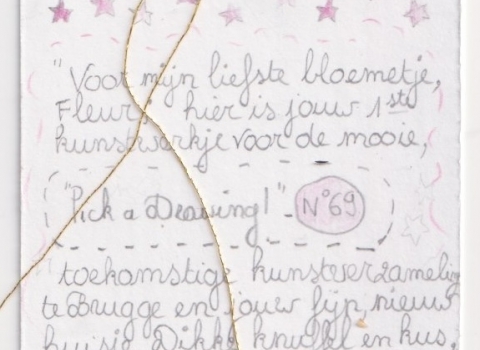 "Voor mijn liefste bloemetje,
Fleur, hier is jouw 1ste
kunstwerkje voor de mooie,
"Pick a Drawing!" - N°69
toekomstige kunstverzameling
te Brugge en jouw fijn, nieuw
huisje. Dikke knuffel en kus,